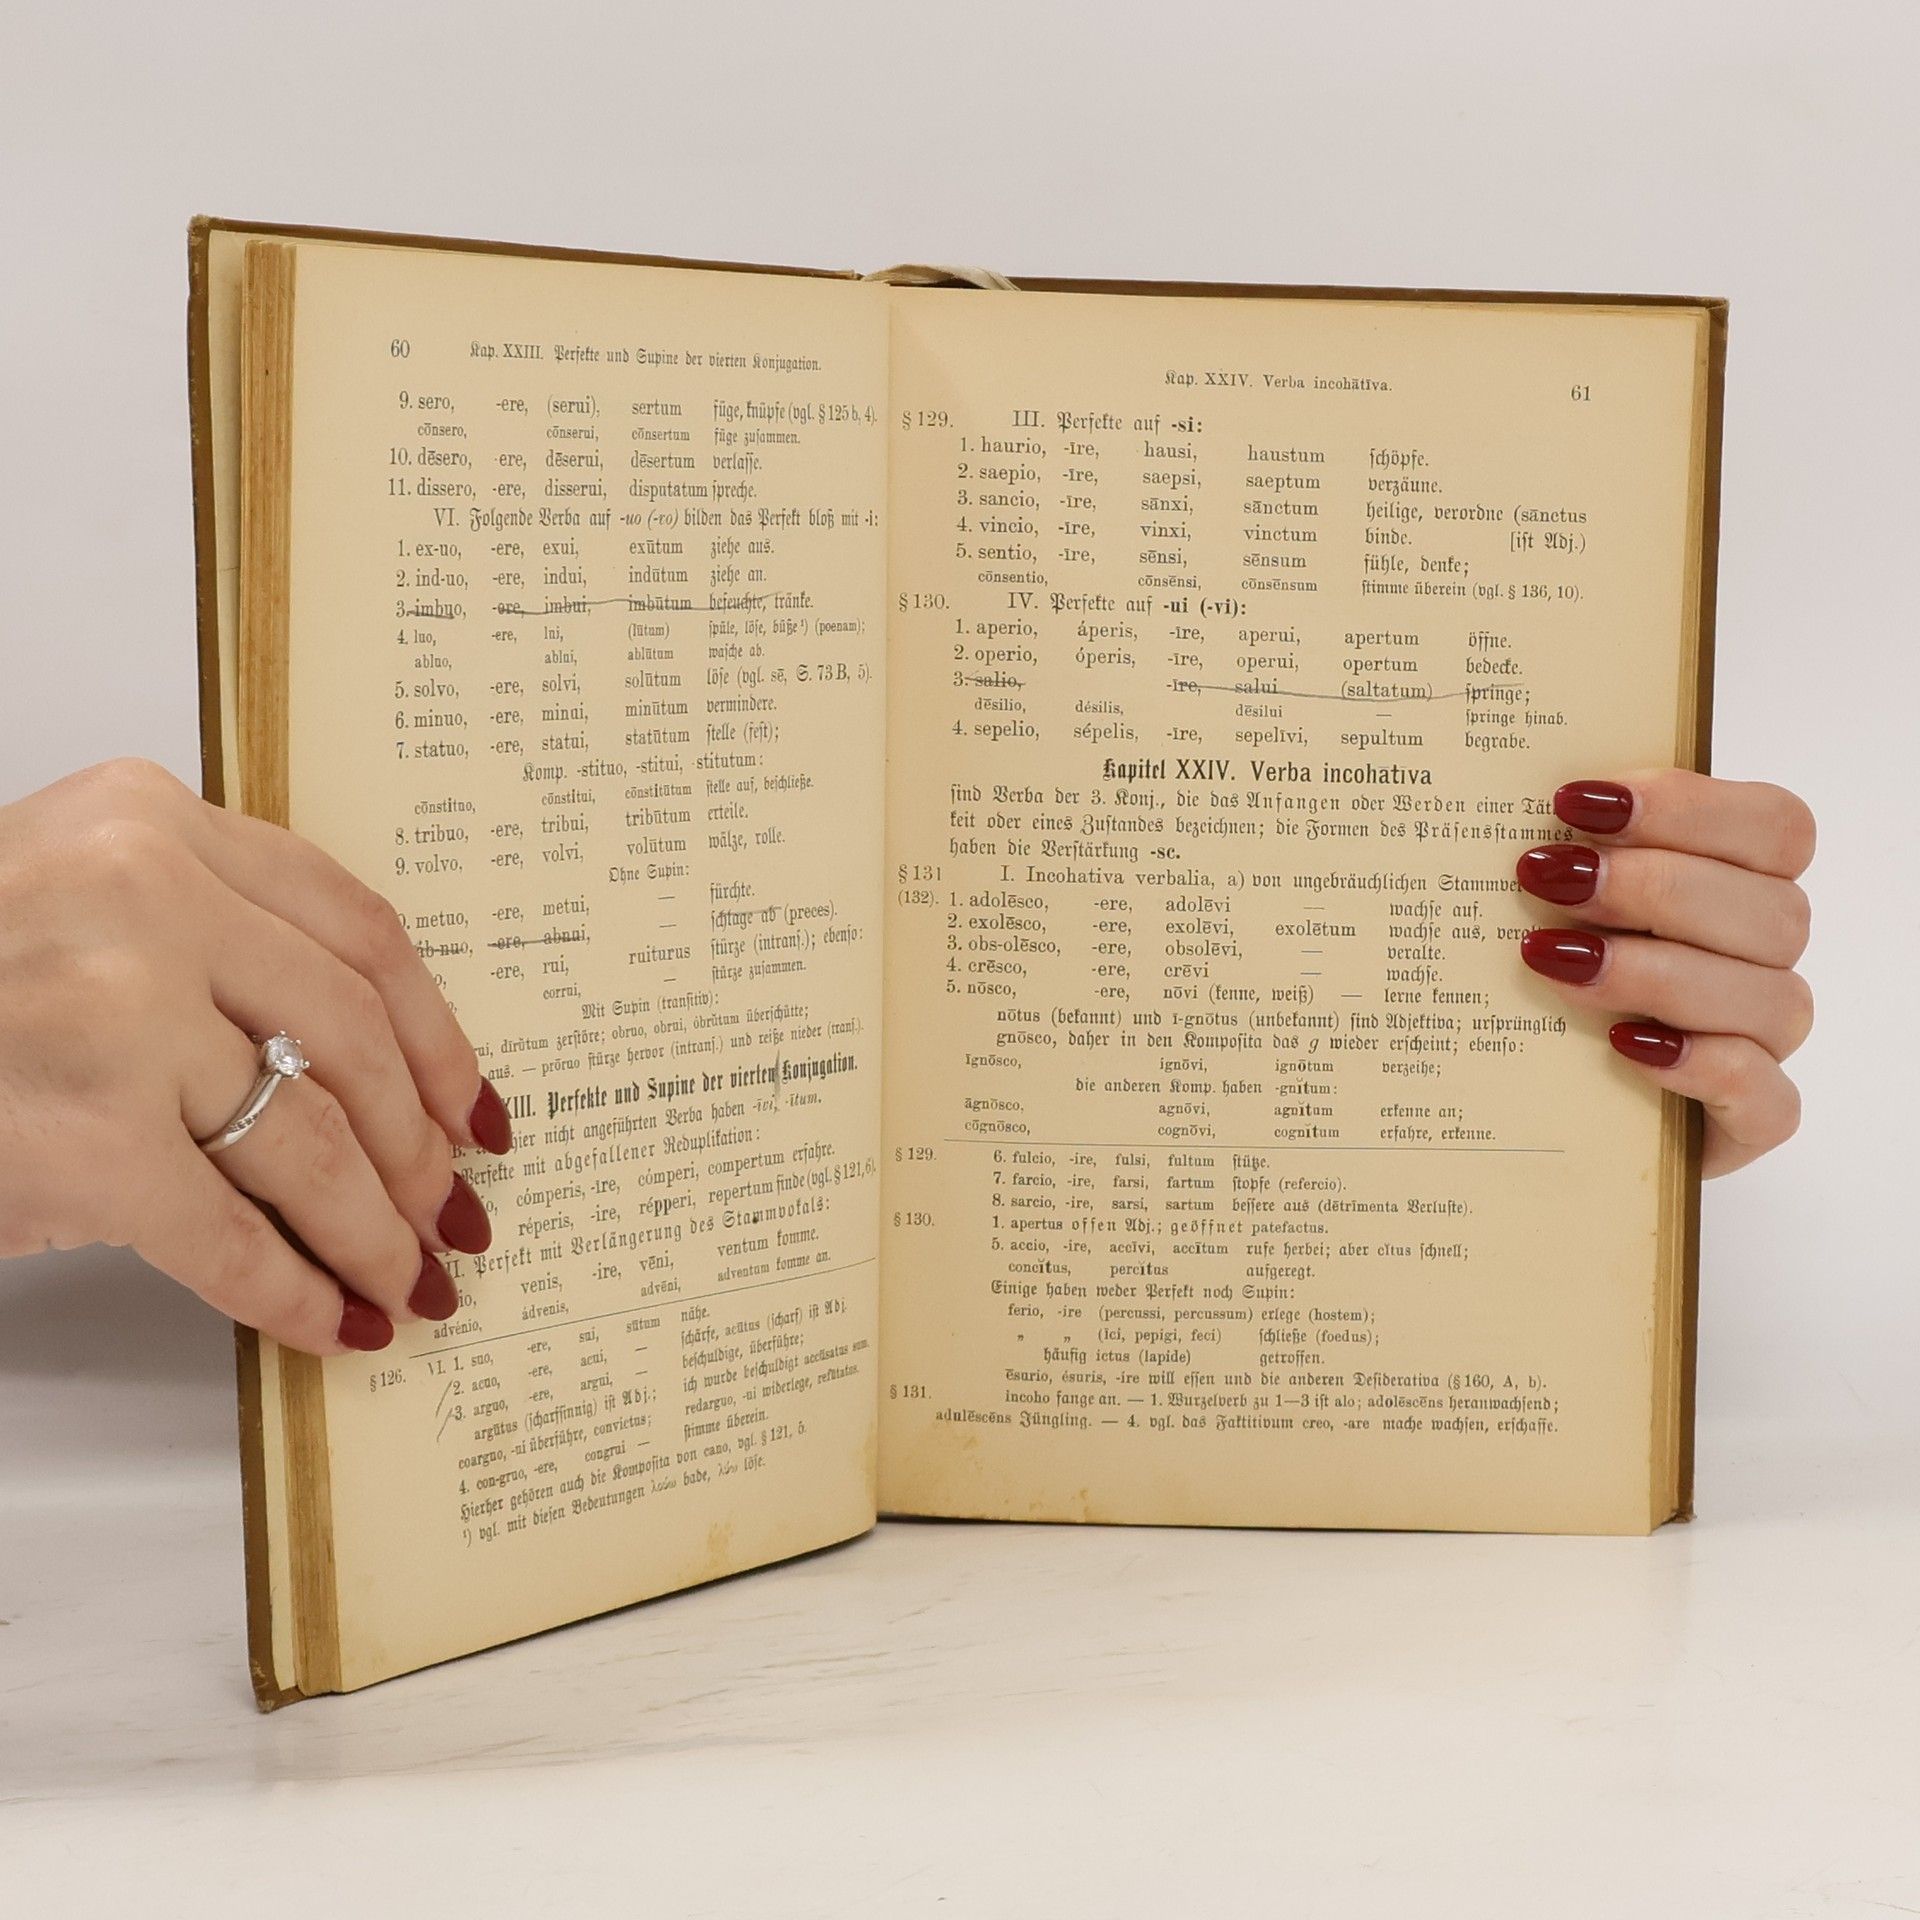 60 Kap. XXIII. Perfekte und Supine der vierten Konjugation.
9. sero, -ere, (serui), sertum füge, knüpfe (vgl. § 125 b, 4).
cōnsero, cōnserui, cōnsertum füge zusammen.
10. dēsero, -ere, dēserui, dēsertum verlasse.
11. dissero, -ere, disserui, disputatum spreche.
VI. Folgende Verba auf -uo (-vo) bilden das Perfekt bloß mit -i:
1. ex-uo, -ere, exui, exūtum ziehe aus.
2. ind-uo, -ere, indui, indūtum ziehe an.
3. imbuo, -ere, imbui, imbūtum befeuchte, tränke.
4. luo, -ere, lui, (lūtum) spüle, löse, büße ¹) (poenam);
abluo, ablui, ablūtum wasche ab.
5. solvo, -ere, solvi, solūtum löse (vgl. sē, S. 73 B, 5).
6. minuo, -ere, minui, minūtum vermindere.
7. statuo, -ere, statui, statūtum stelle (fest);
Komp. -stituo, -stitui, -stitutum:
cōnstituo, cōnstitui, cōnstitūtum stelle auf, beschließe.
8. tribuo, -ere, tribui, tribūtum erteile.
9. volvo, -ere, volvi, volūtum wälze, rolle.
Ohne Supin:
metuo, -ere, metui, — fürchte.
áb-nuo, -ere, abnui, — schlage ab (preces).
-ere, rui, ruiturus stürze (intrans.); ebenso:
corrui, — stürze zusammen.
Mit Supin (transitiv):
dīrūtum zerstöre; obruo, obrui, óbrūtum überschütte;
aus. — prōruo stürze hervor (intrans.) und reiße nieder (trans.).
XIII. Perfekte und Supine der vierten Konjugation.
hier nicht angeführten Verba haben -īvi, -ītum.
Perfekte mit abgefallener Reduplikation:
cómperis, -īre, cómperi, compertum erfahre.
réperis, -ire, répperi, repertum finde (vgl. § 121, 6).
II. Perfekt mit Verlängerung des Stammvokals:
venis, -ire, vēni, ventum komme.
advénio, ádvenis, advēni, adventum komme an.
§ 126. VI. 1. suo, -ere, sui, sūtum nähe.
2. acuo, -ere, acui, — schärfe, acūtus (scharf) ist Adj.
3. arguo, -ere, argui, — beschuldige, überführe;
argūtus (scharfsinnig) ist Adj.; ich wurde beschuldigt accūsatus sum.
coarguo, -ui überführe, convictus; redarguo, -ui widerlege, refūtatus.
4. con-gruo, -ere, congrui — stimme überein.
Hierher gehören auch die Komposita von cano, vgl. § 121, 5.
¹) vgl. mit diesen Bedeutungen λούω bade, λύω löse.
Kap. XXIV. Verba incohātīva. 61
§ 129. III. Perfekte auf -si:
1. haurio, -īre, hausi, haustum schöpfe.
2. saepio, -īre, saepsi, saeptum verzäune.
3. sancio, -īre, sānxi, sānctum heilige, verordne (sānctus
4. vincio, -īre, vinxi, vinctum binde. [ist Adj.)
5. sentio, -īre, sēnsi, sēnsum fühle, denke;
cōnsentio, cōnsēnsi, cōnsēnsum stimme überein (vgl. § 136, 10).
§ 130. IV. Perfekte auf -ui (-vi):
1. aperio, áperis, -īre, aperui, apertum öffne.
2. operio, óperis, -īre, operui, opertum bedecke.
3. salio, -īre, salui (saltatum) springe;
dēsilio, désilis, dēsilui — springe hinab.
4. sepelio, sépelis, -īre, sepelīvi, sepultum begrabe.
Kapitel XXIV. Verba incohātīva
sind Verba der 3. Konj., die das Anfangen oder Werden einer Tät
keit oder eines Zustandes bezeichnen; die Formen des Präsensstammes
haben die Verstärkung -sc.
§ 131 I. Incohativa verbalia, a) von ungebräuchlichen
(132). 1. adolēsco, -ere, adolēvi — wachse auf.
2. exolēsco, -ere, exolēvi, exolētum wachse aus,
3. obs-olēsco, -ere, obsolēvi, — veralte.
4. crēsco, -ere, crēvi — wachse.
5. nōsco, -ere, nōvi (kenne, weiß) — lerne kennen;
nōtus (bekannt) und ī-gnōtus (unbekannt) sind Adjektiva; ursprünglich
gnōsco, daher in den Komposita das g wieder erscheint; ebenso:
īgnōsco, ignōvi, ignōtum verzeihe;
die anderen Komp. haben -gnĭtum:
āgnōsco, agnōvi, agnĭtum erkenne an;
cōgnōsco, cognōvi, cognĭtum erfahre, erkenne.
§ 129. 6. fulcio, -ire, fulsi, fultum stütze.
7. farcio, -ire, farsi, fartum stopfe (refercio).
8. sarcio, -ire, sarsi, sartum bessere aus (dētrīmenta Verluste).
§ 130. 1. apertus offen Adj.; geöffnet patefactus.
5. accio, -ire, accīvi, accītum rufe herbei; aber cĭtus schnell;
concĭtus, percĭtus aufgeregt.
Einige haben weder Perfekt noch Supin:
ferio, -ire (percussi, percussum) erlege (hostem);
„ „ (īci, pepigi, feci) schließe (foedus);
häufig ictus (lapide) getroffen.
ēsurio, ésuris, -ire will essen und die anderen Desiderativa (§ 160, A, b).
§ 131. incoho fange an. — 1. Wurzelverb zu 1—3 ist alo; adolēscēns heranwachsend;
adulēscēns Jüngling. — 4. vgl. das Faktitivum creo, -are mache wachsen, erschaffe.